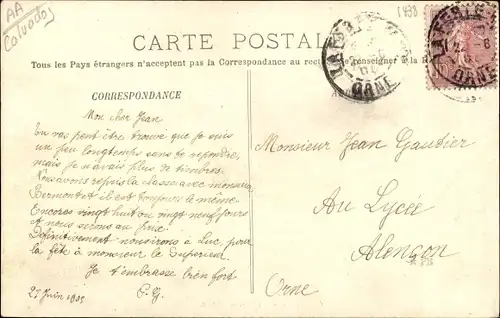 AA
Calvados
1438
CARTE POSTALE
Tous les Pays étrangers n'acceptent pas la Correspondance au recto. Se renseigner à la
CORRESPONDANCE
Mon cher Jean
tu vas peut être trouvé que je suis
un peu longtemps sans te repondre,
mais je n'avais plus de timbres.
Nous avons repris la classe avec monsieur
Bermontet il est toujours le même.
Encores vingt huit ou vingt neuf jours
et nous sirons au
Définitivement nousirons à Luc pour
la fête à monsieur le Superieur.
Je t'embrasse bien fort
27 Juin 1905
E. G.
Monsieur Jean Gautier
Au Lycée
Alençon
Orne
LA FERTE
ORNE
LA FERTE
ORNE